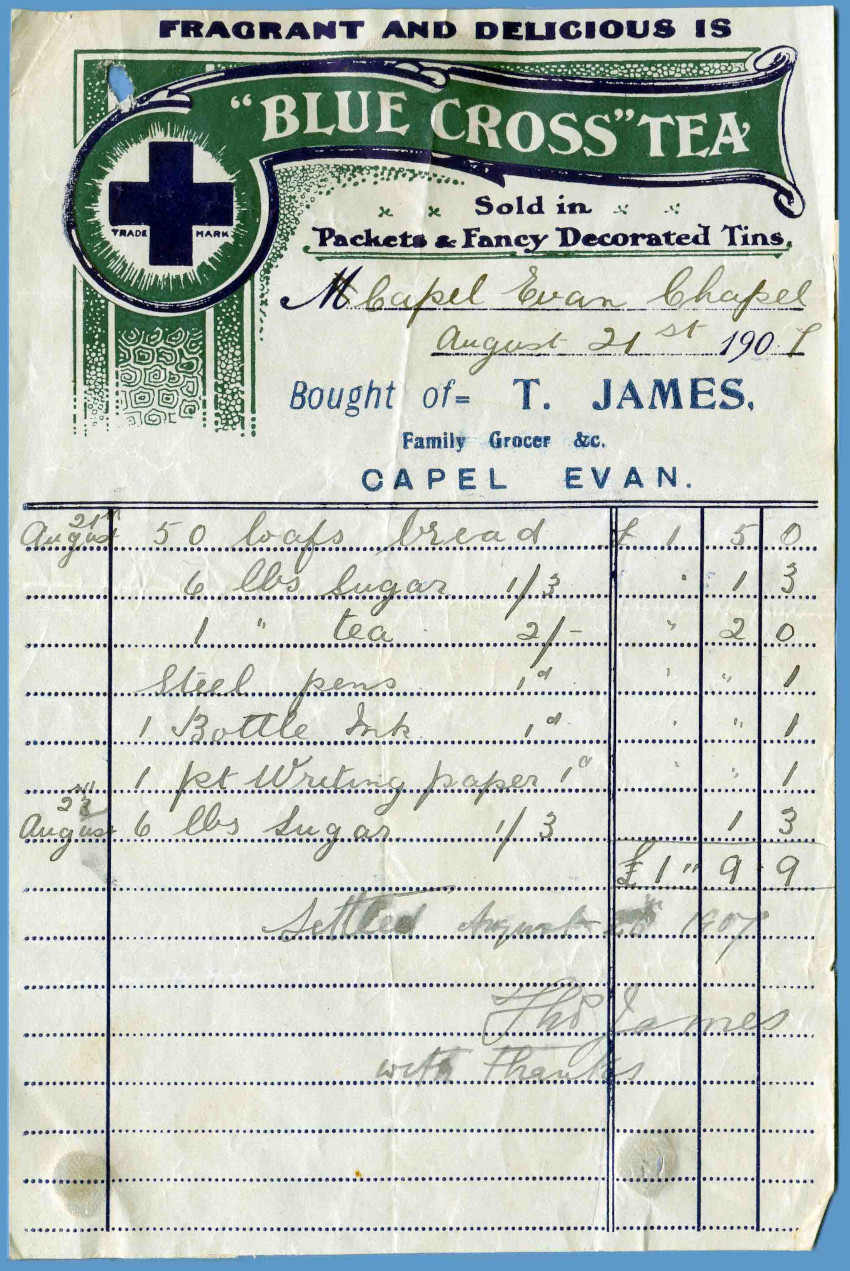 FRAGRANT AND DELICIOUS IS
"BLUE CROSS" TEA
TRADE MARK
Sold in
Packets & Fancy Decorated Tins.
M Capel Evan Chapel
August 21st 1907
Bought of = T. JAMES,
Family Grocer &c.
CAPEL EVAN.
August 21st 50 loafs bread £ 1 5 0
6 lbs Sugar 1/3 " 1 3
1 " tea 2/- " 2 0
Steel pens 1d " " 1
1 Bottle Ink 1d " " 1
1 pt Writing paper 1d " " 1
August 6 lbs Sugar 1/3 1 3
£1 " 9 . 9
Settled August 1907
Thos James
with Thanks